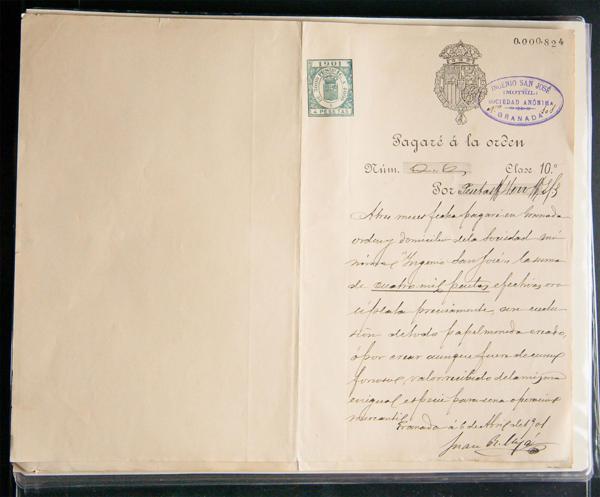 0.000.824
1901
4 PESETAS
INGENIO SAN JOSÉ
(MOTRIL)
SOCIEDAD ANÓNIMA
GRANADA
Pagaré á la orden
Núm. Clase 10.ª
Por Pesetas
A tres meses fecha pagaré en Granada
orden y domicilio de la Sociedad anó-
nima "Ingenio San José", la suma
de cuatro mil pesetas, efectivas, oro
ó plata precisamente, con exclu-
sión de todo papel moneda creado,
ó por crear aunque fuera de curso
forzoso, valor recibido de la misma
en igual especie para una operación
mercantil.
Granada á 6 de Abril de 1901
Juan